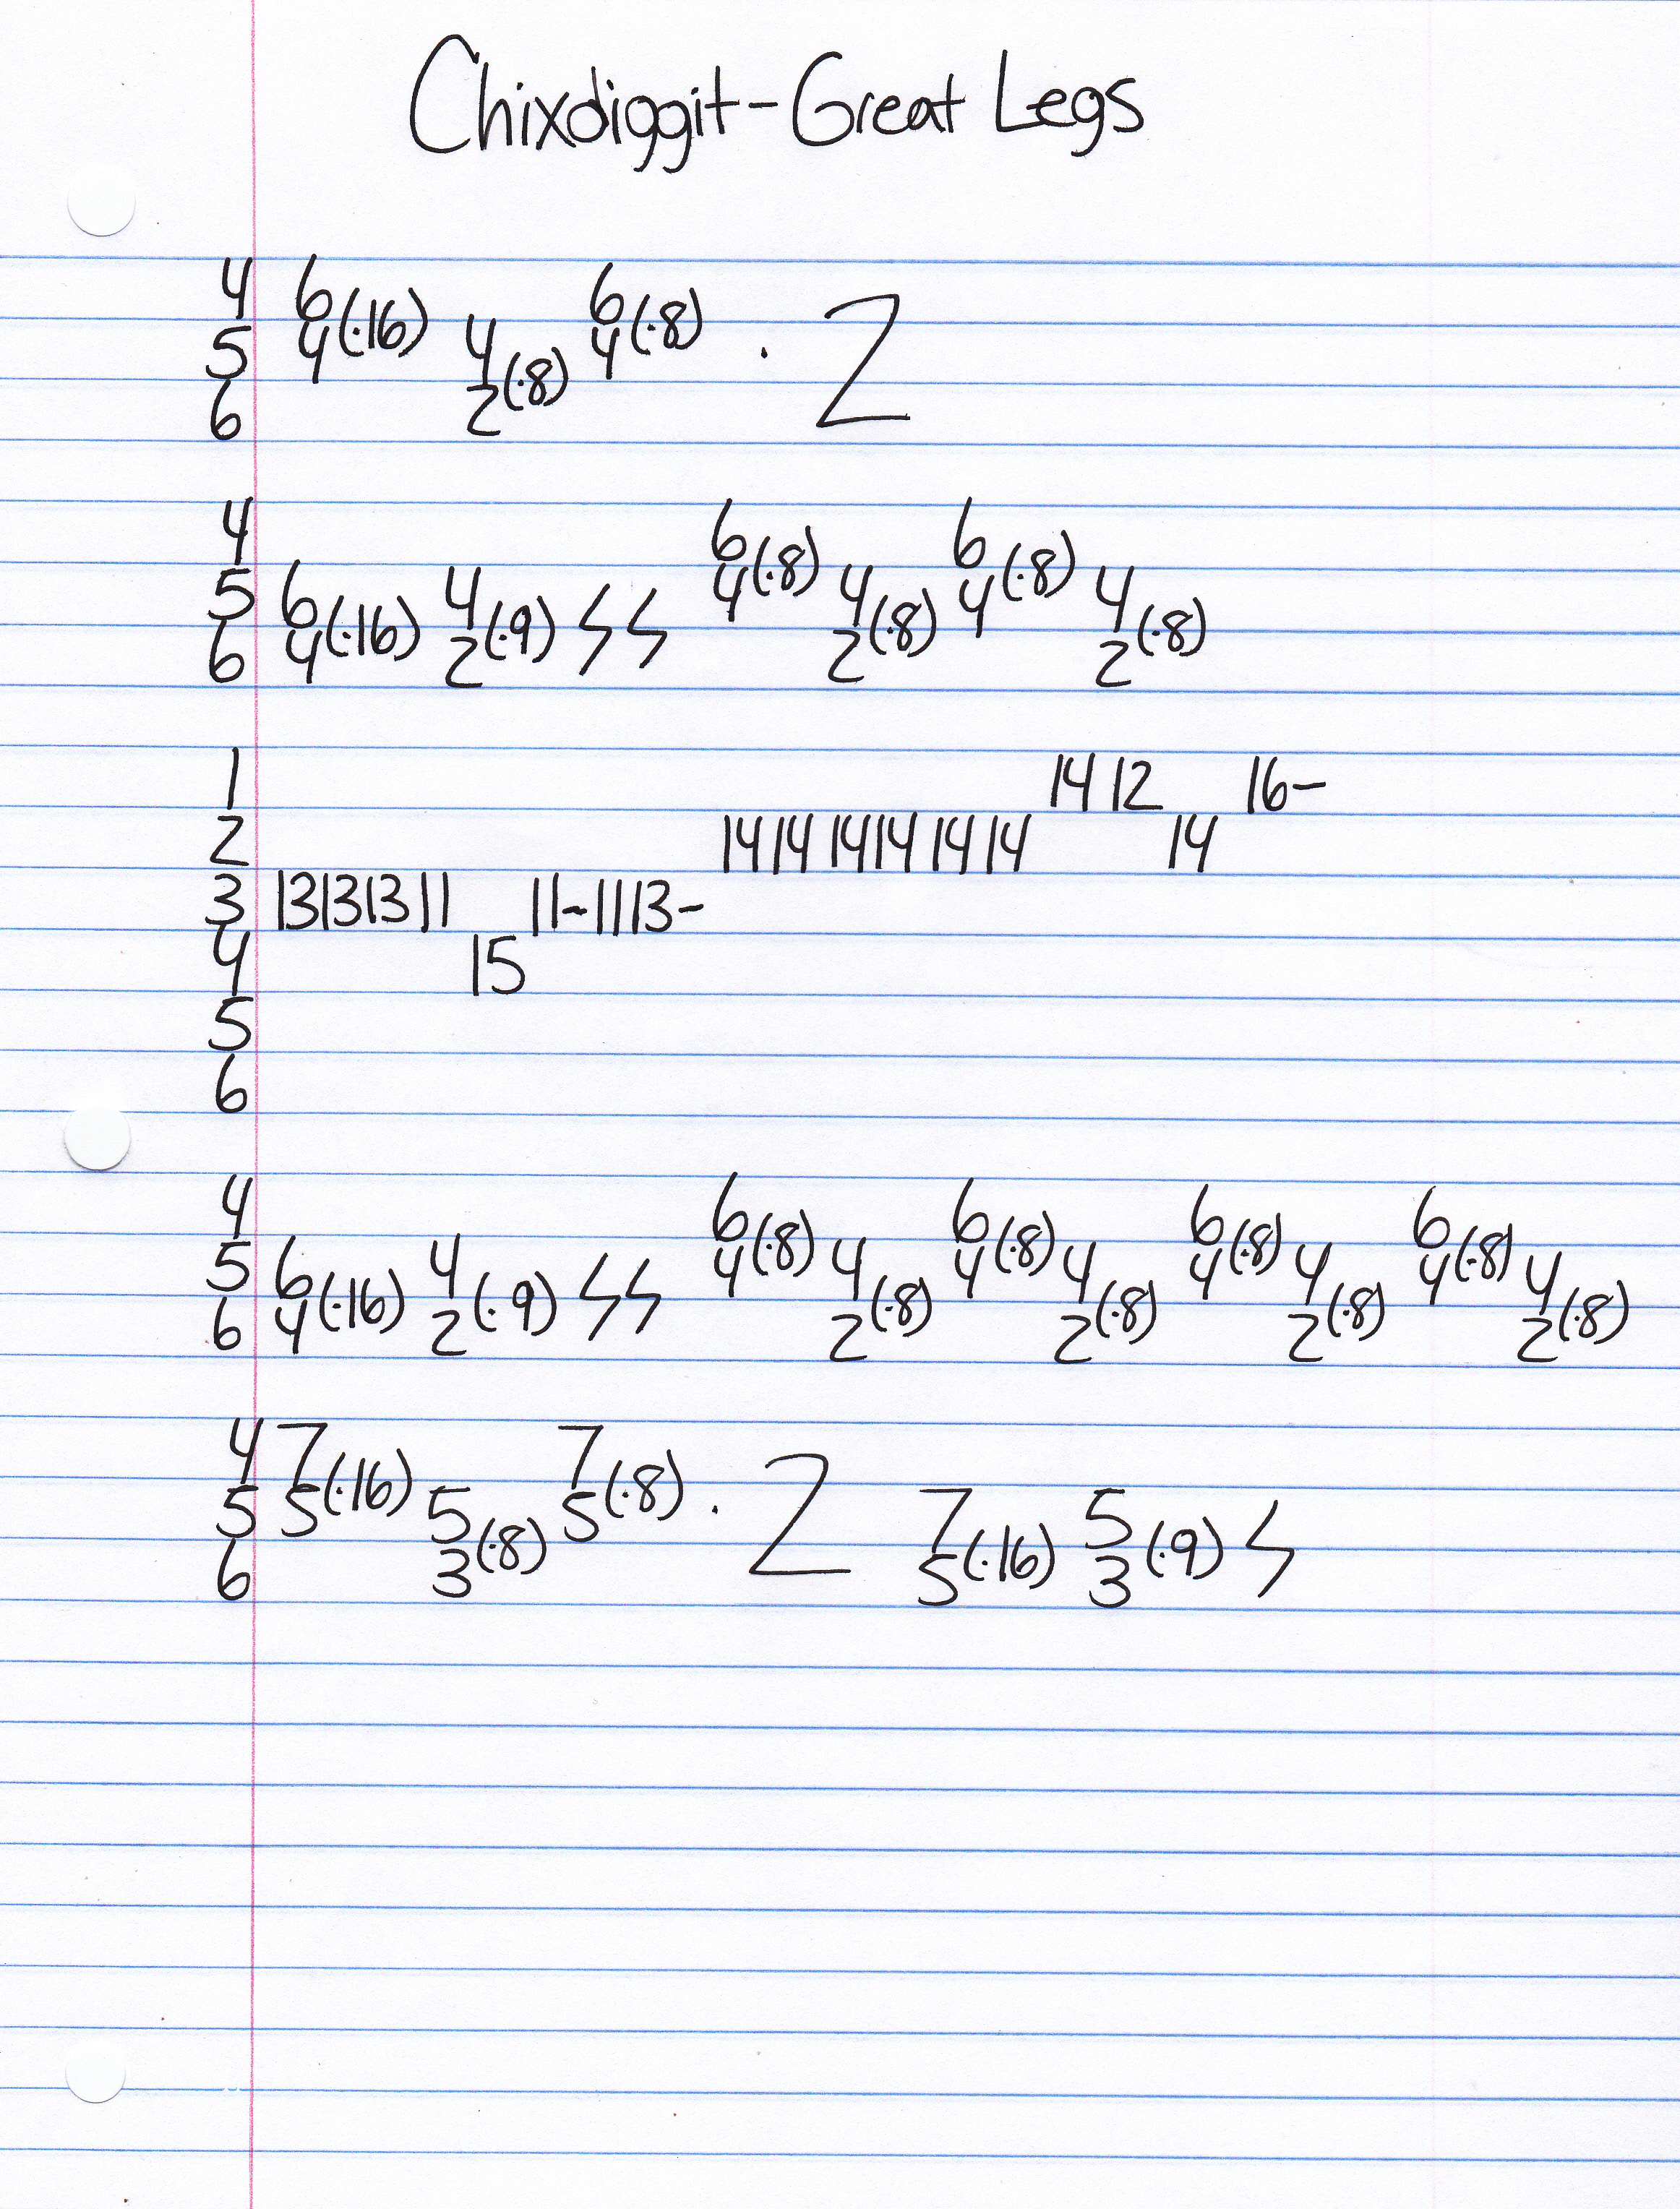 Chixdiggit - Great Legs
4 6 6
5 4(·16) 4 4(·8) · 2
6 2(·8)
4 6(·8) 6(·8)
5 6 4 4 4 4 4
6 4(·16) 2(·9) ϟ ϟ 2(·8) 2(·8)
1 14 12 16-
2 14 14 14 14 14 14 14
3 13 13 13 11 11-11 13-
4 15
5
6
4 6(·8) 6(·8) 6(·8) 6(·8)
5 6 4 4 4 4 4 4 4 4 4
6 4(·16) 2(·9) ϟ ϟ 2(·8) 2(·8) 2(·8) 2(·8)
4 7 7
5 5(·16) 5 5(·8) · 2 7 5
6 3(·8) 5(·16) 3(·9) ϟ